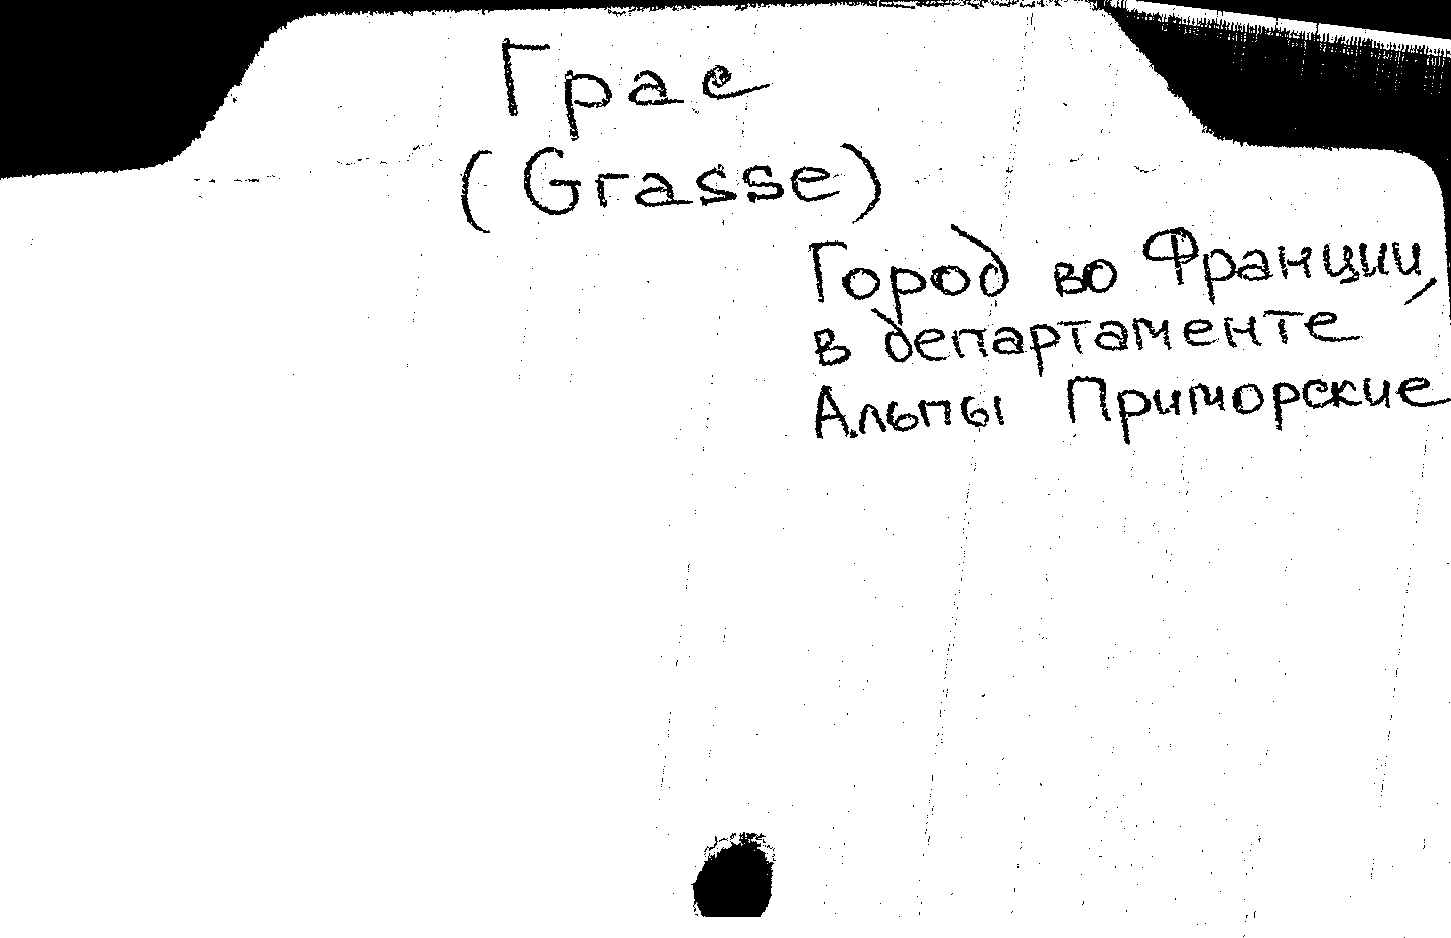 Грас
(Grasse)
Город во Франции,
в департаменте
Альпы Приморские